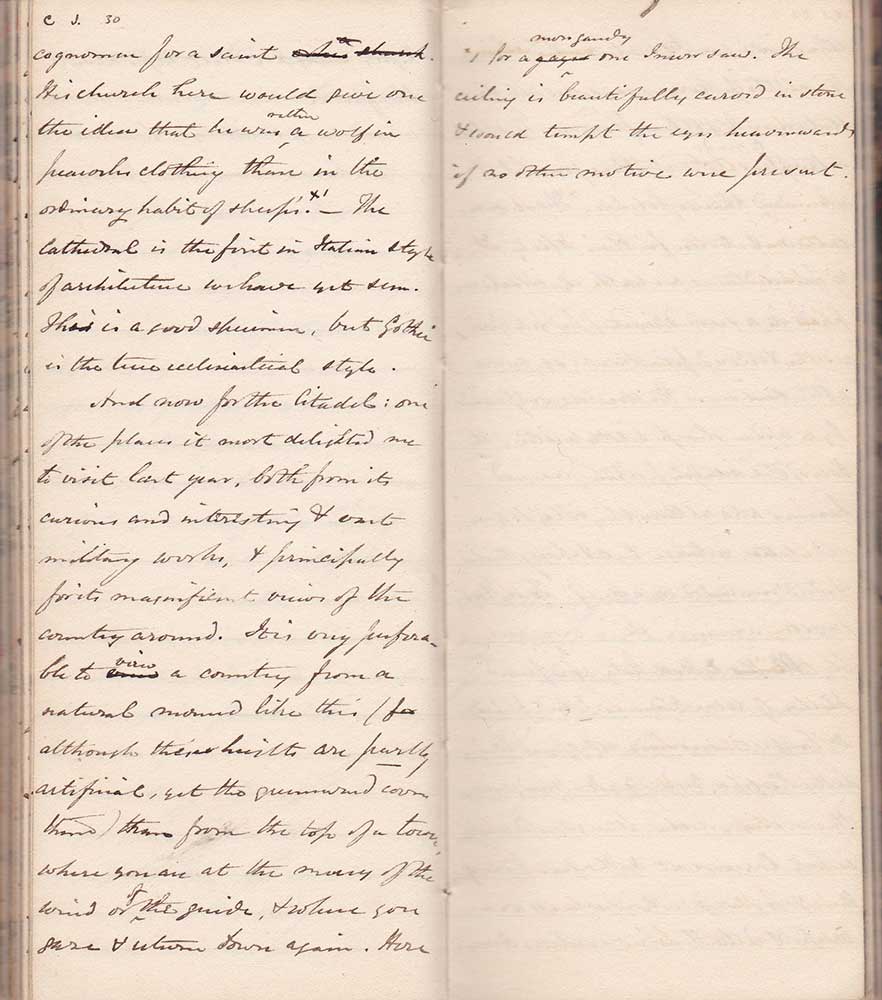 C J. 30
cognomen for a saint.
His church here would give one
the idea that he was rather a wolf in
peacocks clothing than in the
ordinary habit of sheep's. x1 — The
Cathedral is the first in Italian style
of architecture we have yet seen.
This is a good specimen, but Gothic
is the true ecclesiastical style.
And now for the Citadel: one
of the places it most delighted me
to visit last year, both from its
curious and interesting & vast
military works, & principally
for its magnificent views of the
country around. It is very prefera-
ble to view a country from a
natural mound like this (
although these heights are partly
artificial, yet the greensward covers
them) than from the top of a tower
where you are at the mercy of the
wind or of the guide, & where you
gaze & return down again. Here
x1 for a more gaudy one I never saw. The
ceiling is beautifully carved in stone
& would tempt the eyes heavenwards
if no other motive were present.